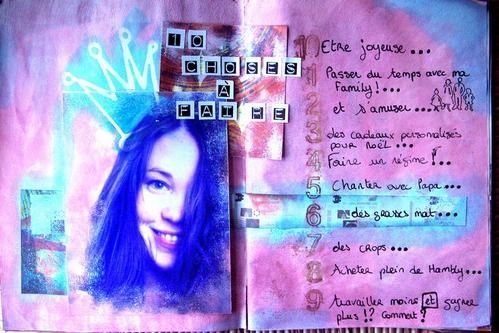 10
CHOSES
A
FAIRE
10 Etre joyeuse...
1 Passer du temps avec ma
Family!...
2 et s'amuser...
3 des cadeaux personalisés
pour noël...
4 Faire un régime!...
5 Chanter avec Papa...
6 des grasses mat...
7 des crops...
8 Acheter plein de Hambly...
9 travailler moins et gagner
plus!? Comment?